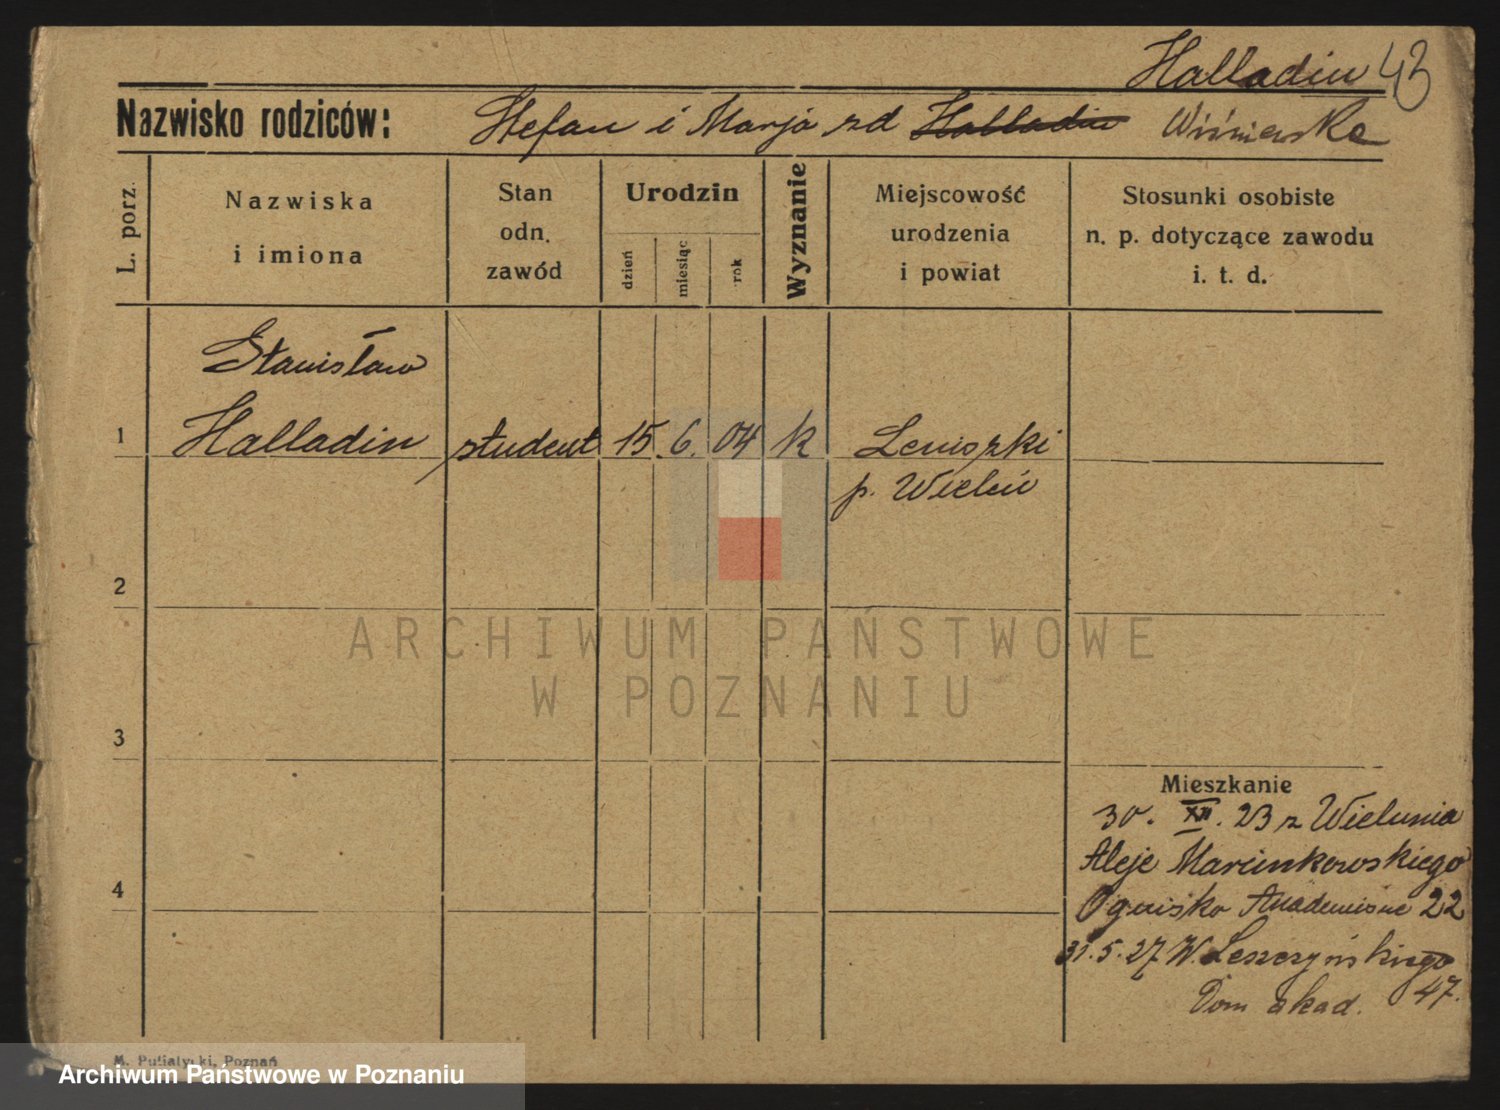 Halladin 43
Nazwisko rodziców: Stefan i Marja zd Halladin Wiśniewska
L. porz.
Nazwiska
i imiona
Stan
odn.
zawód
Urodzin
dzień
miesiąc
rok
Wyznanie
Miejscowość
urodzenia
i powiat
Stosunki osobiste
n. p. dotyczące zawodu
i. t. d.
Stanisław
1 Halladin student 15. 6. 04 k Leniszki
p. Wieluń
2
ARCHIWUM PAŃSTWOWE
W POZNANIU
3
Mieszkanie
30. XII. 23 z Wielunia
Aleje Marcinkowskiego
4
Ognisko Akademickie 22
31.5.27 W. Leszczyńskiego
47.
Dom akad.
M. Putiatycki, Poznań
Archiwum Państwowe w Poznaniu